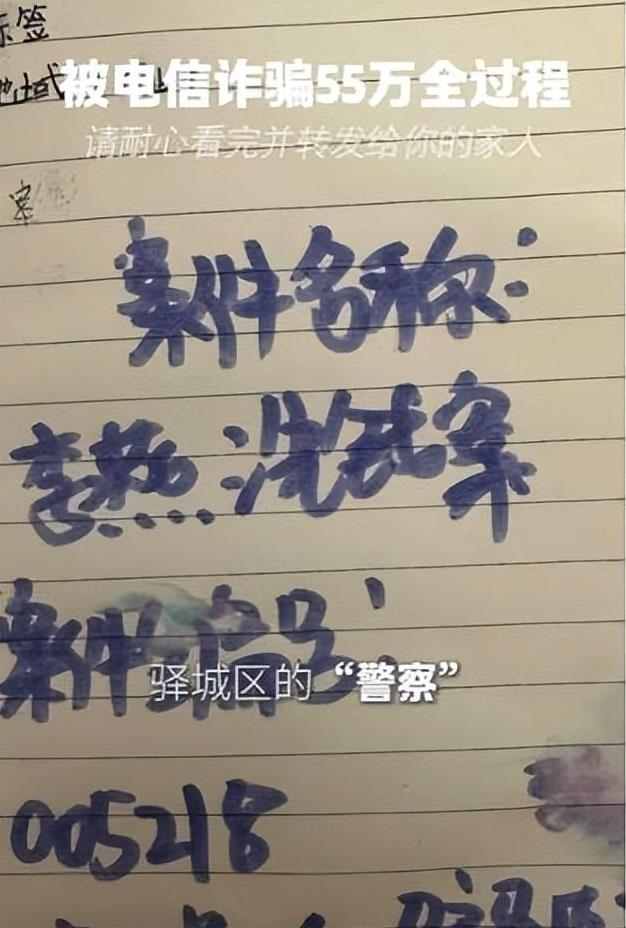 标签
地域
被电信诈骗55万全过程
请耐心看完并转发给你的家人
案件名称:
李燕洗钱案
案件编号:
驿城区的“警察”
005218